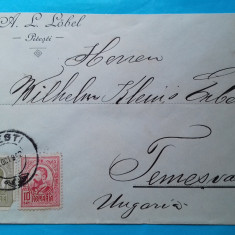 A. L. Löbel
Pitești
Herren
Wilhelm Kleins Erbe
Temesva
Ungaria
ESTI
10 ROMANIA 10